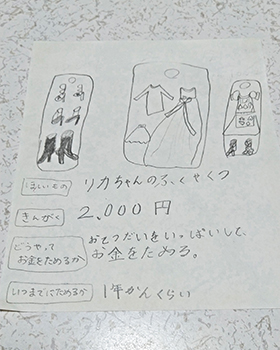 ほしいもの リカちゃんのふくやくつ
きんがく 2,000円
どうやってお金をためるか おてつだいをいっぱいして、
お金をためる。
いつまでにためるか 1年かんくらい